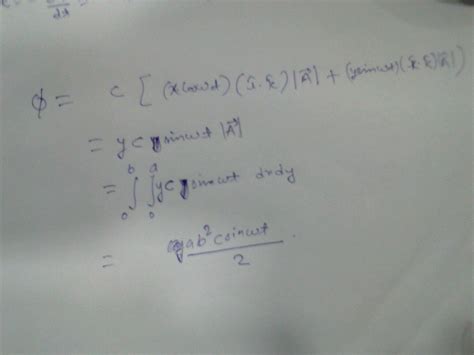 dt
φ = c [ (x cosωt) (î. k̂) |A⃗| + (y sinωt) (k̂. k̂) |A⃗| ]
= y c sinωt |A⃗|
= ∫₀ᵇ ∫₀ᵃ y c sinωt dxdy
= ab² c sinωt / 2 .